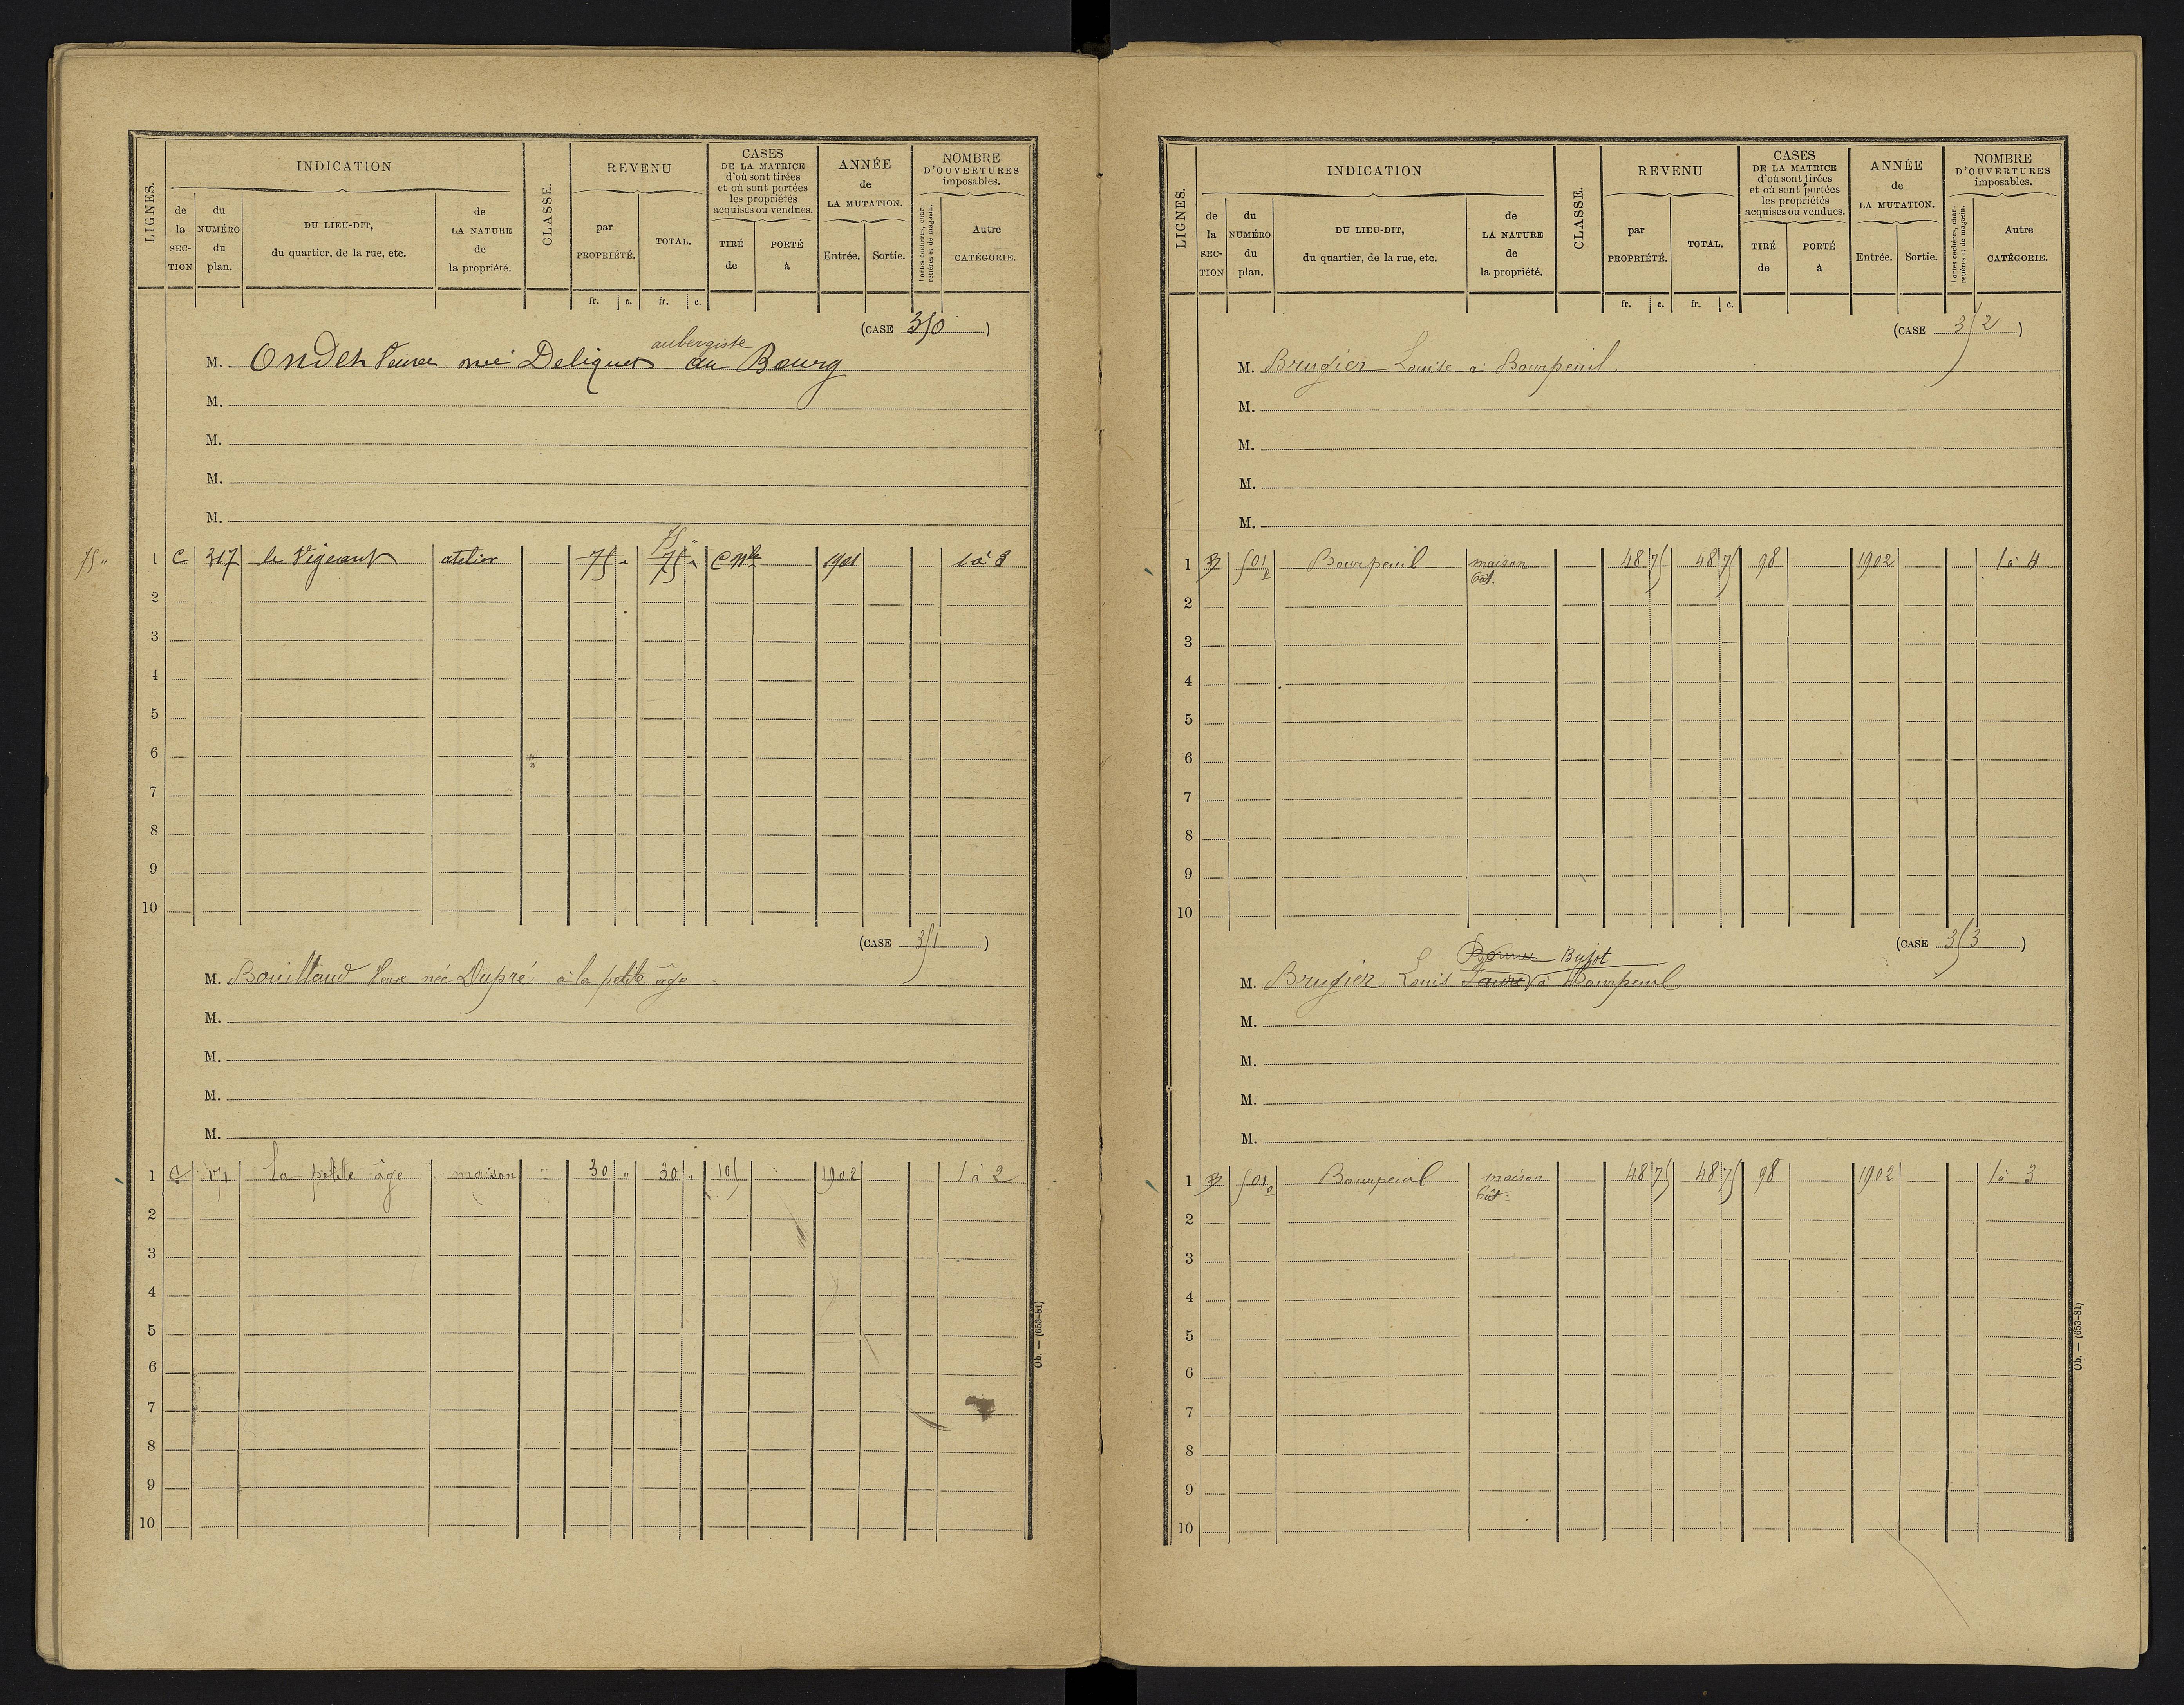 LIGNES.
INDICATION
de la SECTION
du NUMÉRO du plan.
DU LIEU-DIT, du quartier, de la rue, etc.
de LA NATURE de la propriété.
CLASSE.
REVENU
par PROPRIÉTÉ.
TOTAL.
CASES DE LA MATRICE d'où sont tirées et où sont portées les propriétés acquises ou vendues.
TIRÉ de
PORTÉ à
ANNÉE de LA MUTATION.
Entrée.
Sortie.
NOMBRE D'OUVERTURES imposables.
Portes cochères, charretières et de magasin.
Autre CATÉGORIE.
fr. c. fr. c.
(CASE 350)
aubergiste
M. Ondet Veuve née Deliquet au Bourg
M.
M.
M.
M.
75 "
75 "
1 C 317 le Vigeant atelier 75 " 75 " C Nlle 1901 1 à 8
2
3
4
5
6
7
8
9
10
(CASE 351)
M. Bouillaud Veuve née Dupré à la petite âge
M.
M.
M.
M.
1 C 171 la petite âge maison " 30 " 30 " 105 " 1902 1 à 2
2
3
4
5
6
7
8
9
10
Ob. — (653-81)
LIGNES.
INDICATION
de la SECTION
du NUMÉRO du plan.
DU LIEU-DIT, du quartier, de la rue, etc.
de LA NATURE de la propriété.
CLASSE.
REVENU
par PROPRIÉTÉ.
TOTAL.
CASES DE LA MATRICE d'où sont tirées et où sont portées les propriétés acquises ou vendues.
TIRÉ de
PORTÉ à
ANNÉE de LA MUTATION.
Entrée.
Sortie.
NOMBRE D'OUVERTURES imposables.
Portes cochères, charretières et de magasin.
Autre CATÉGORIE.
fr. c. fr. c.
(CASE 352)
M. Brugier Louise à Bourpeuil
M.
M.
M.
M.
1 B 501p Bourpeuil maison 48 75 48 75 98 1902 1 à 4
bât.
2
3
4
5
6
7
8
9
10
(CASE 353)
Bujot
M. Brugier Louis Faure à Bourpeuil
M.
M.
M.
M.
1 B 501p Bourpeuil maison 48 75 48 75 98 1902 1 à 3
bât.
2
3
4
5
6
7
8
9
10
Ob. — (653-81)